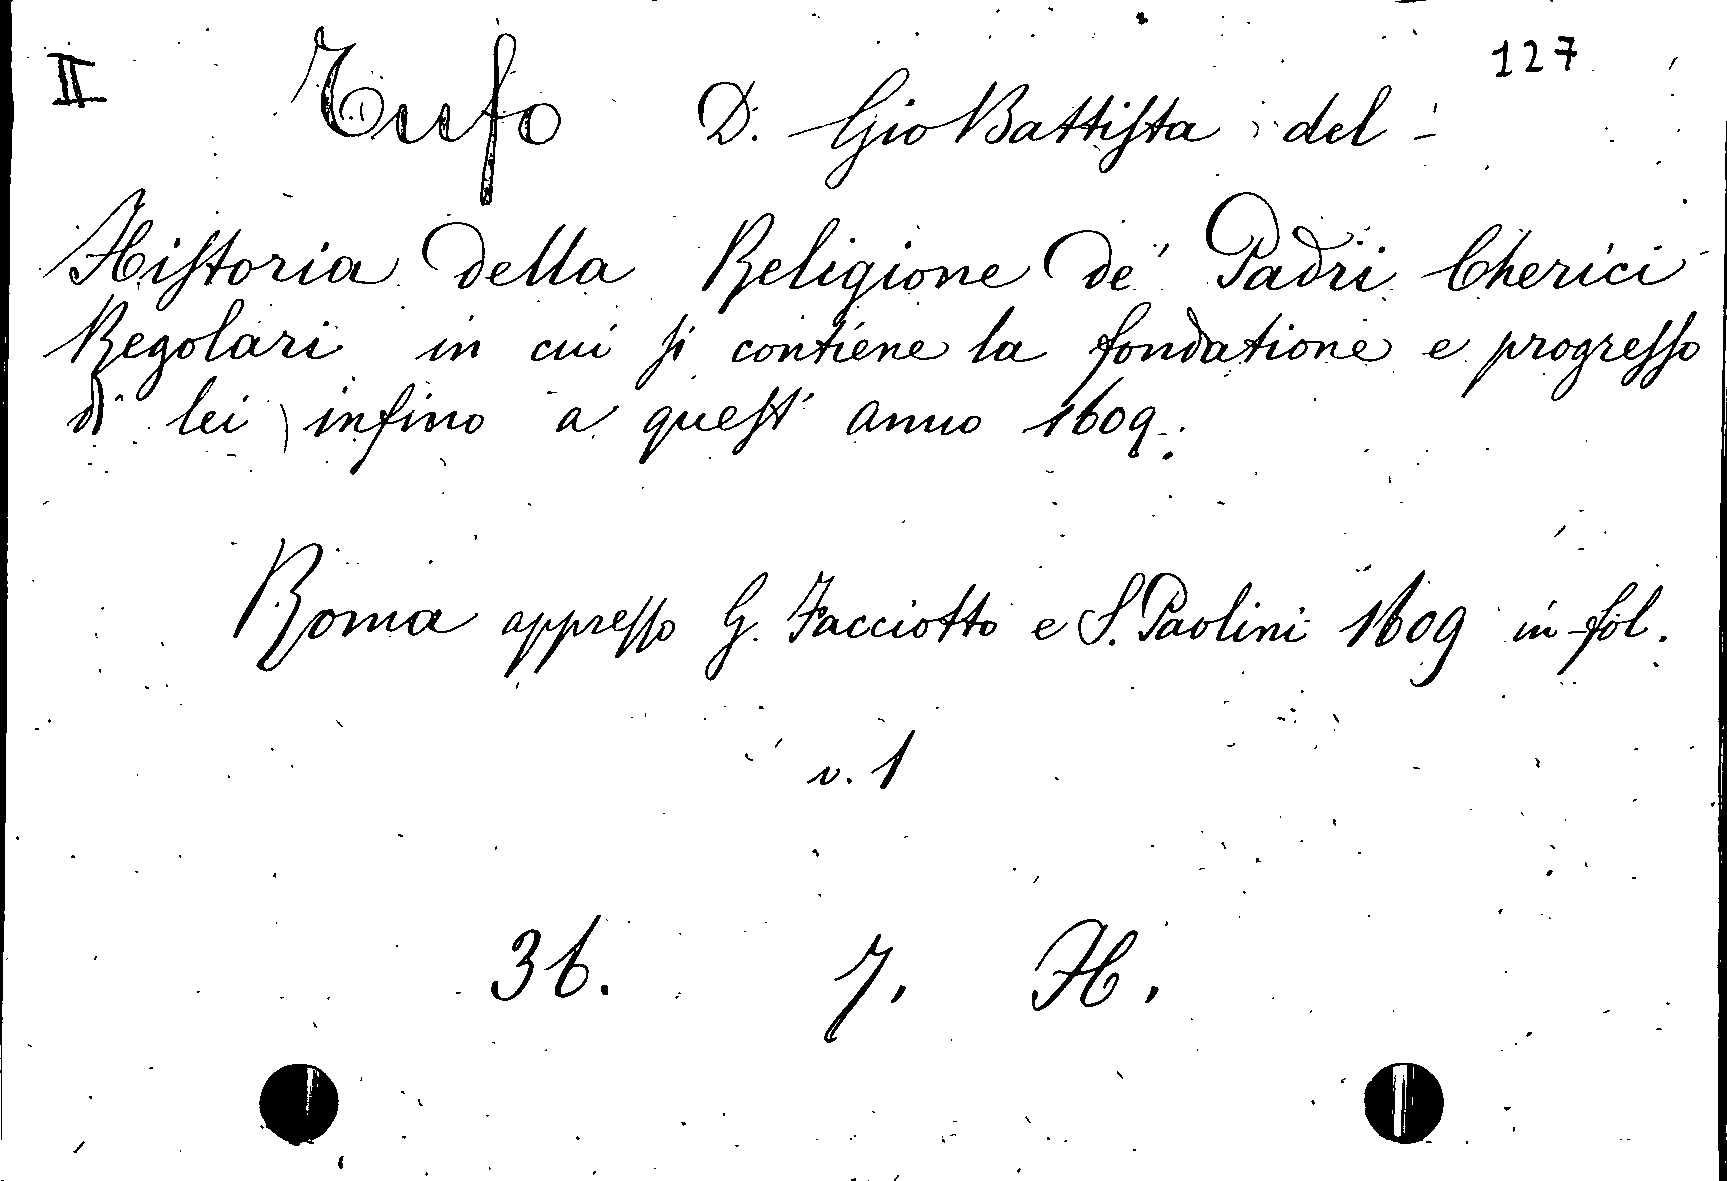 II 127
Tufo D. Gio Battista del -
Historia della Religione de' Padri Cherici
Regolari in cui si contiene la fondatione e progresso
di lei infino a quest' anno 1609.
Roma appresso G. Facciotto e S. Paolini 1609 in fol.
v. 1
36. 7. H.